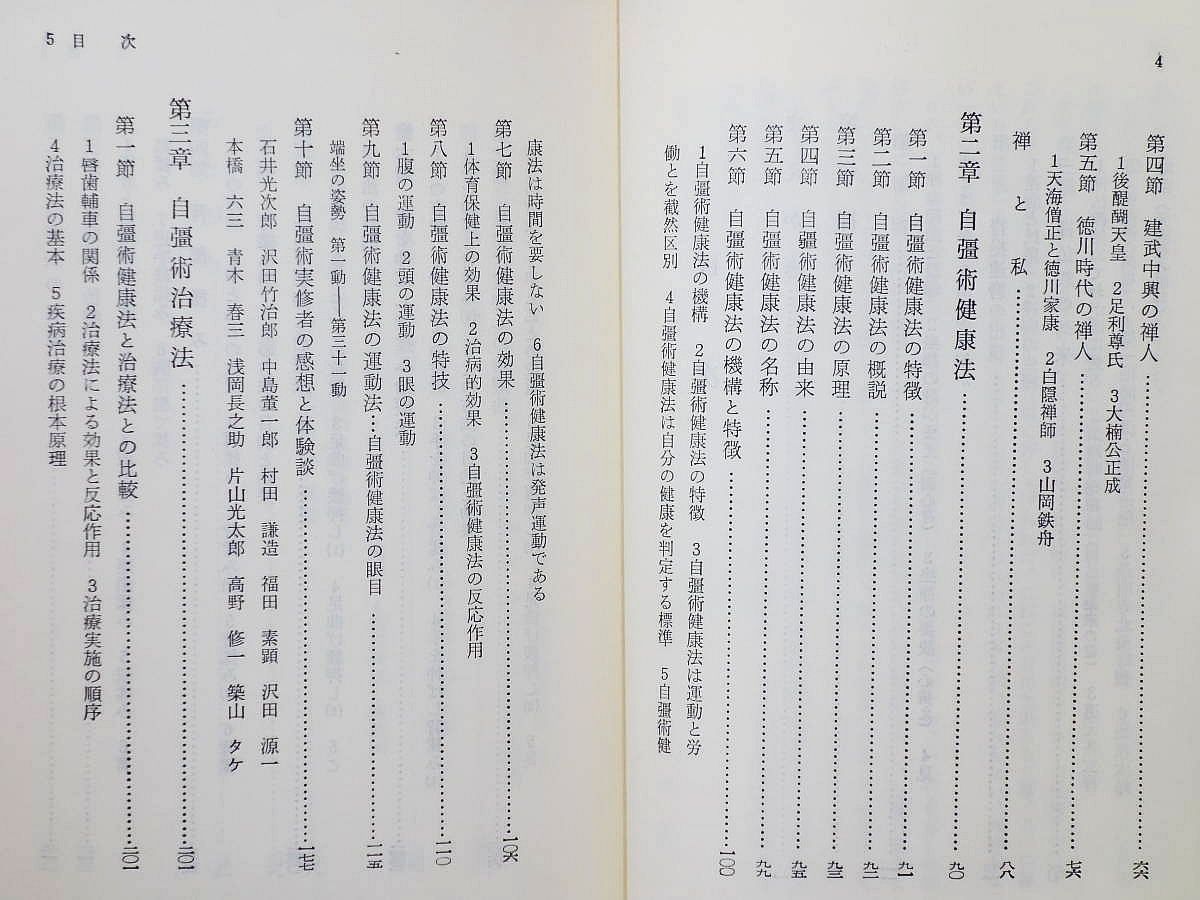 4
第四節　建武中興の禅人……六六
1後醍醐天皇　2足利尊氏　3大楠公正成
第五節　徳川時代の禅人……七六
1天海僧正と徳川家康　2白隠禅師　3山岡鉄舟
禅と私……八八
第二章　自彊術健康法……九〇
第一節　自彊術健康法の特徴……九一
第二節　自彊術健康法の概説……九二
第三節　自彊術健康法の原理……九三
第四節　自彊術健康法の由来……九五
第五節　自彊術健康法の名称……九九
第六節　自彊術健康法の機構と特徴……一〇〇
1自彊術健康法の機構　2自彊術健康法の特徴　3自彊術健康法は運動と労
働とを截然区別　4自彊術健康法は自分の健康を判定する標準　5自彊術健
5　目　次
康法は時間を要しない　6自彊術健康法は発声運動である
第七節　自彊術健康法の効果……一〇六
1体育保健上の効果　2治病的効果　3自彊術健康法の反応作用
第八節　自彊術健康法の特技……一一〇
1腹の運動　2頭の運動　3眼の運動
第九節　自彊術健康法の運動法…自彊術健康法の眼目……一一五
端坐の姿勢　第一動――第三十一動
第十節　自彊術実修者の感想と体験談……一七七
石井光次郎　沢田竹治郎　中島董一郎　村田　謙造　福田　素顕　沢田　源一
本橋　六三　青木　春三　浅岡長之助　片山光太郎　高野　修一　築山　タケ
第三章　自彊術治療法……二〇一
第一節　自彊術健康法と治療法との比較……二〇一
1唇歯輔車の関係　2治療法による効果と反応作用　3治療実施の順序
4治療法の基本　5疾病治療の根本原理